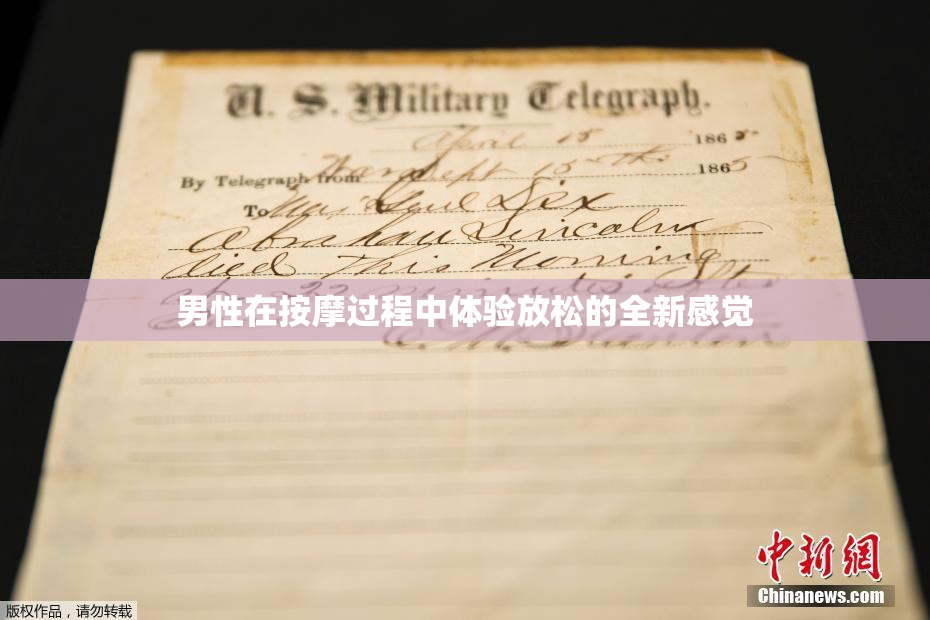 U. S. Military Telegraph.
April 15 1865
By Telegraph from War Dept 15th 1865
To Maj Genl Dix
Abraham Lincoln
died This Morning
at 22 minutes after
男性在按摩过程中体验放松的全新感觉
中新网
Chinanews.com
版权作品，请勿转载